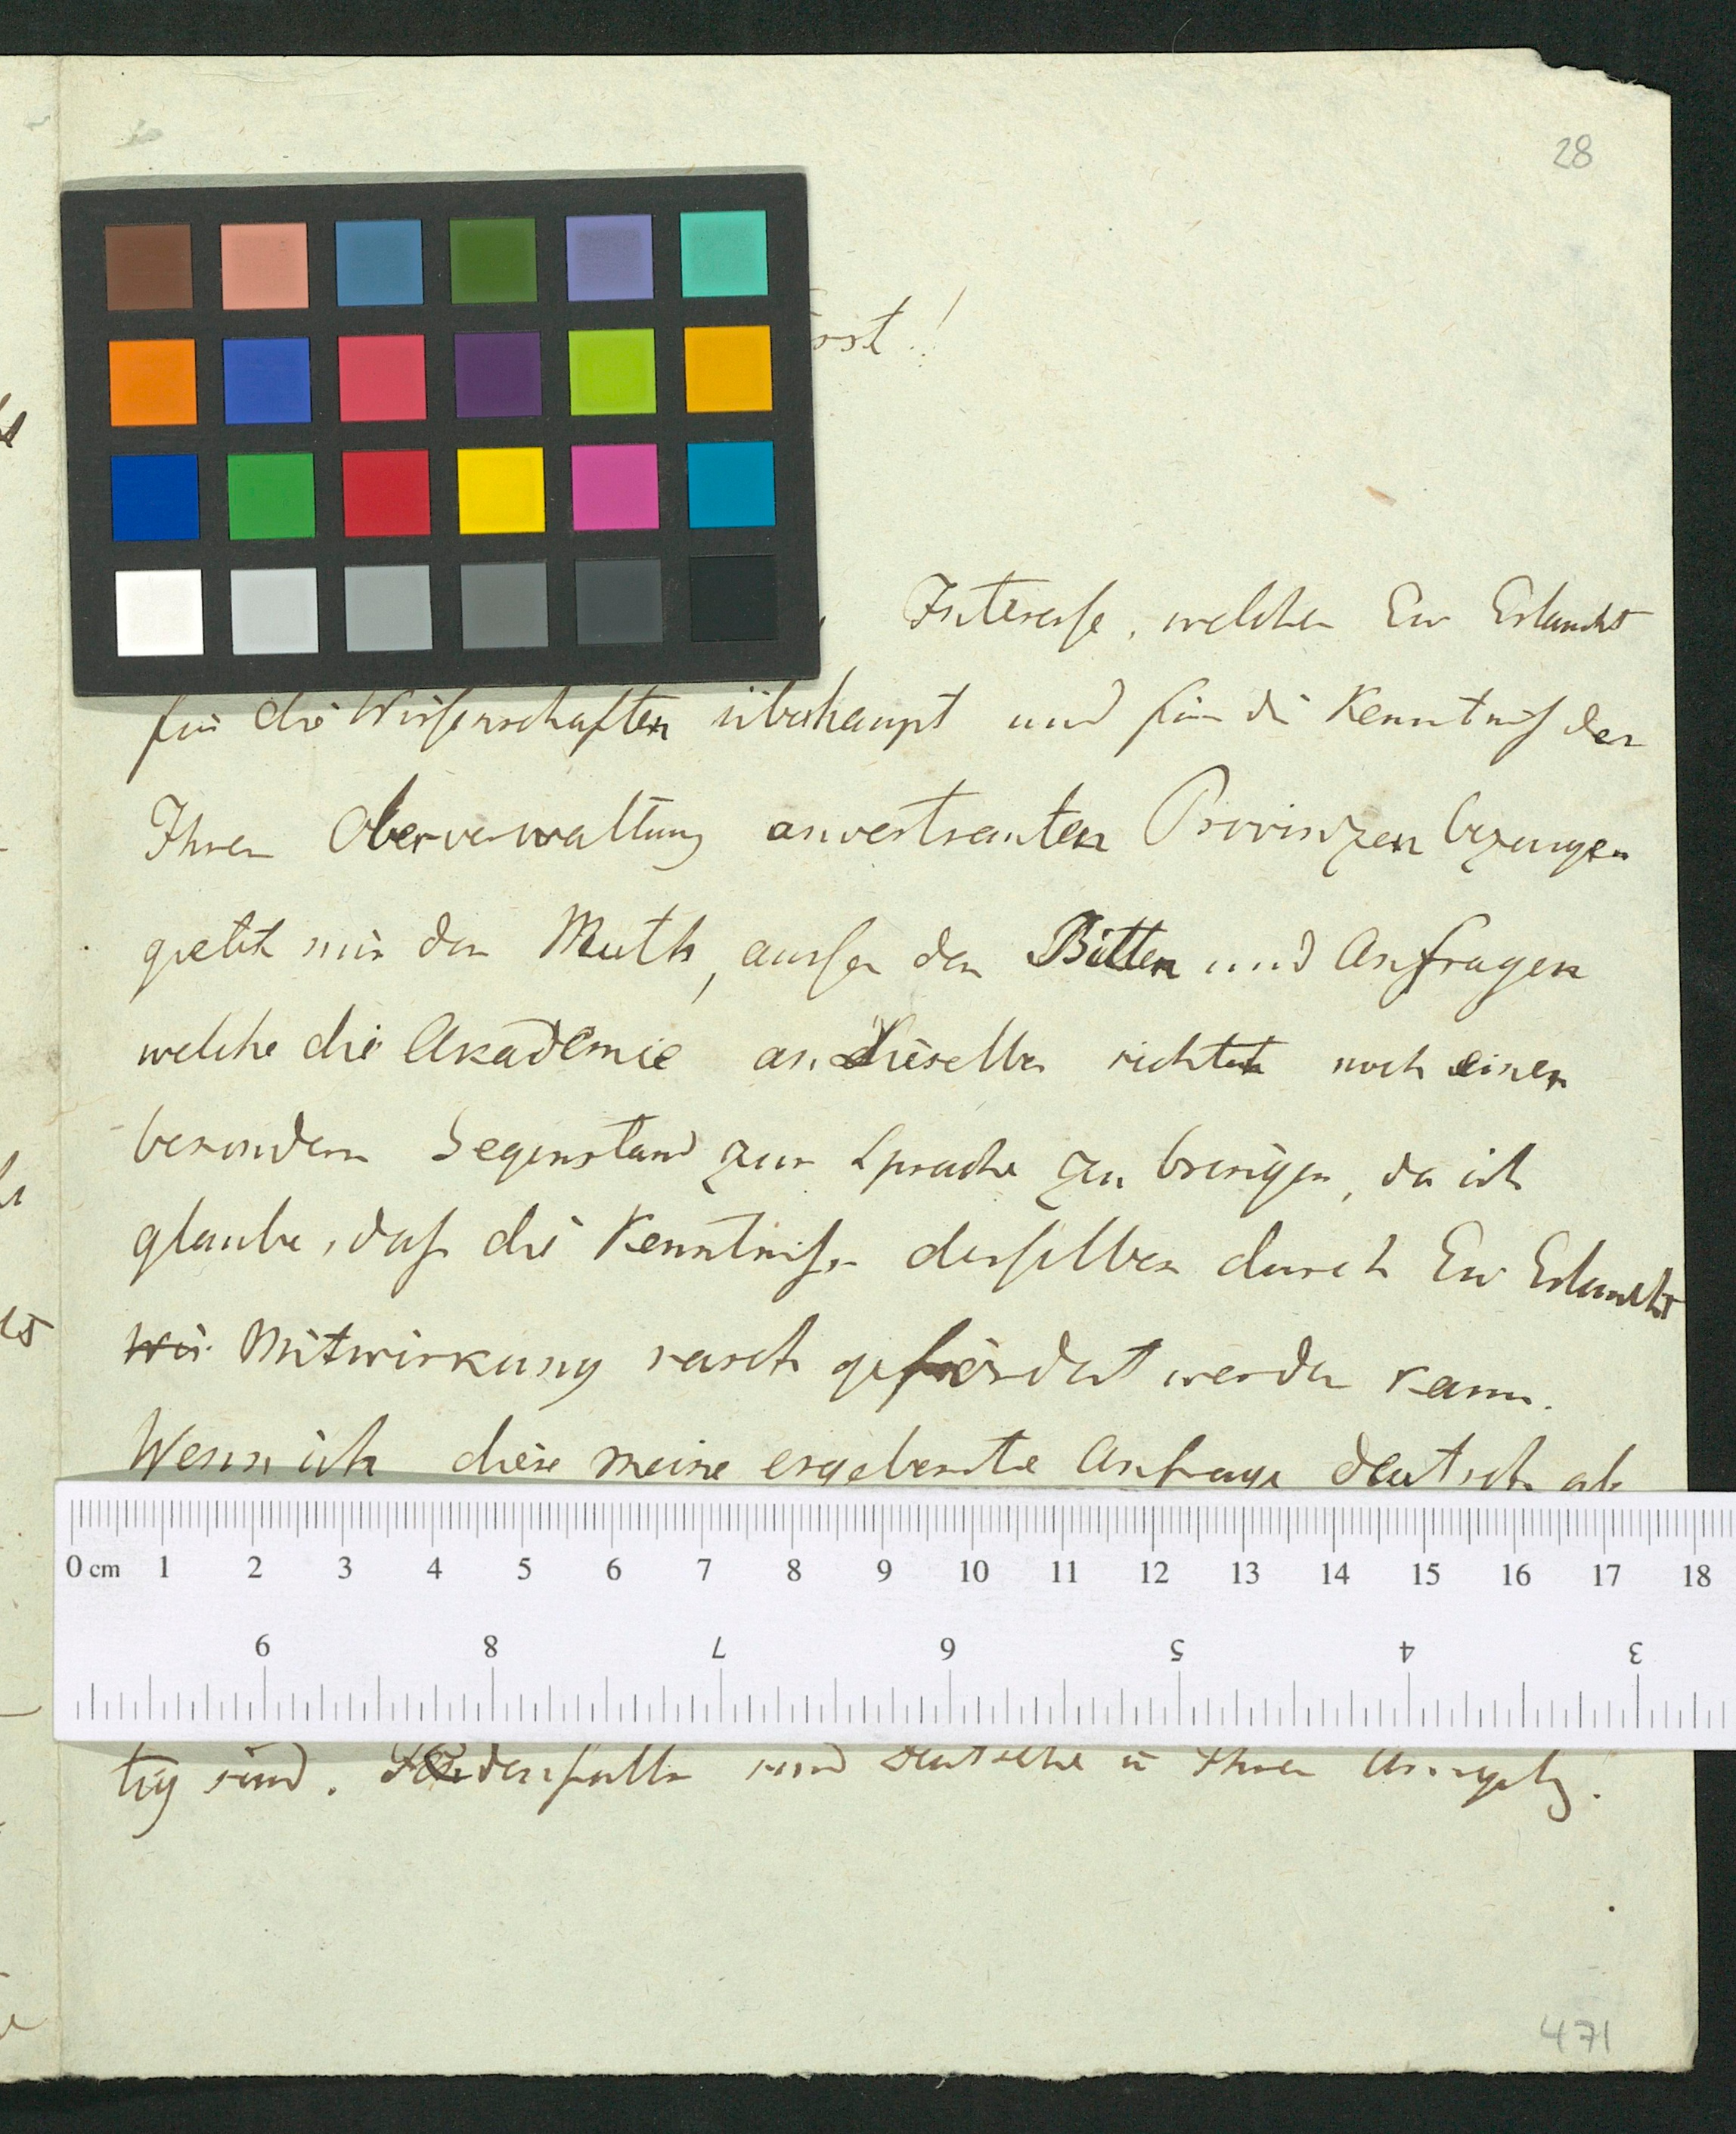 28
rst!
Interesse, welches Ew Erlaucht
für die Wissenschaften überhaupt und für die Kenntniß der
Ihrer Oberverwaltung anvertrauten Provinzen bezeugen
giebt mir den Muth, außer den Bitten und Anfragen
welche die Akademie an Dieselben richtet noch einen
besondern Gegenstand zur Sprache zu bringen, da ich
glaube, daß die Kenntniß desselben durch Ew Erlaucht
Mitwirkung rasch gefördert werden kann.
Wenn ich diese meine ergebenste Anfrage deutsch ab
0 cm 1 2 3 4 5 6 7 8 9 10 11 12 13 14 15 16 17 18
9 8 7 6 5 4 3
tig sind. Jedenfalls sind Deutsche in Ihrer
471